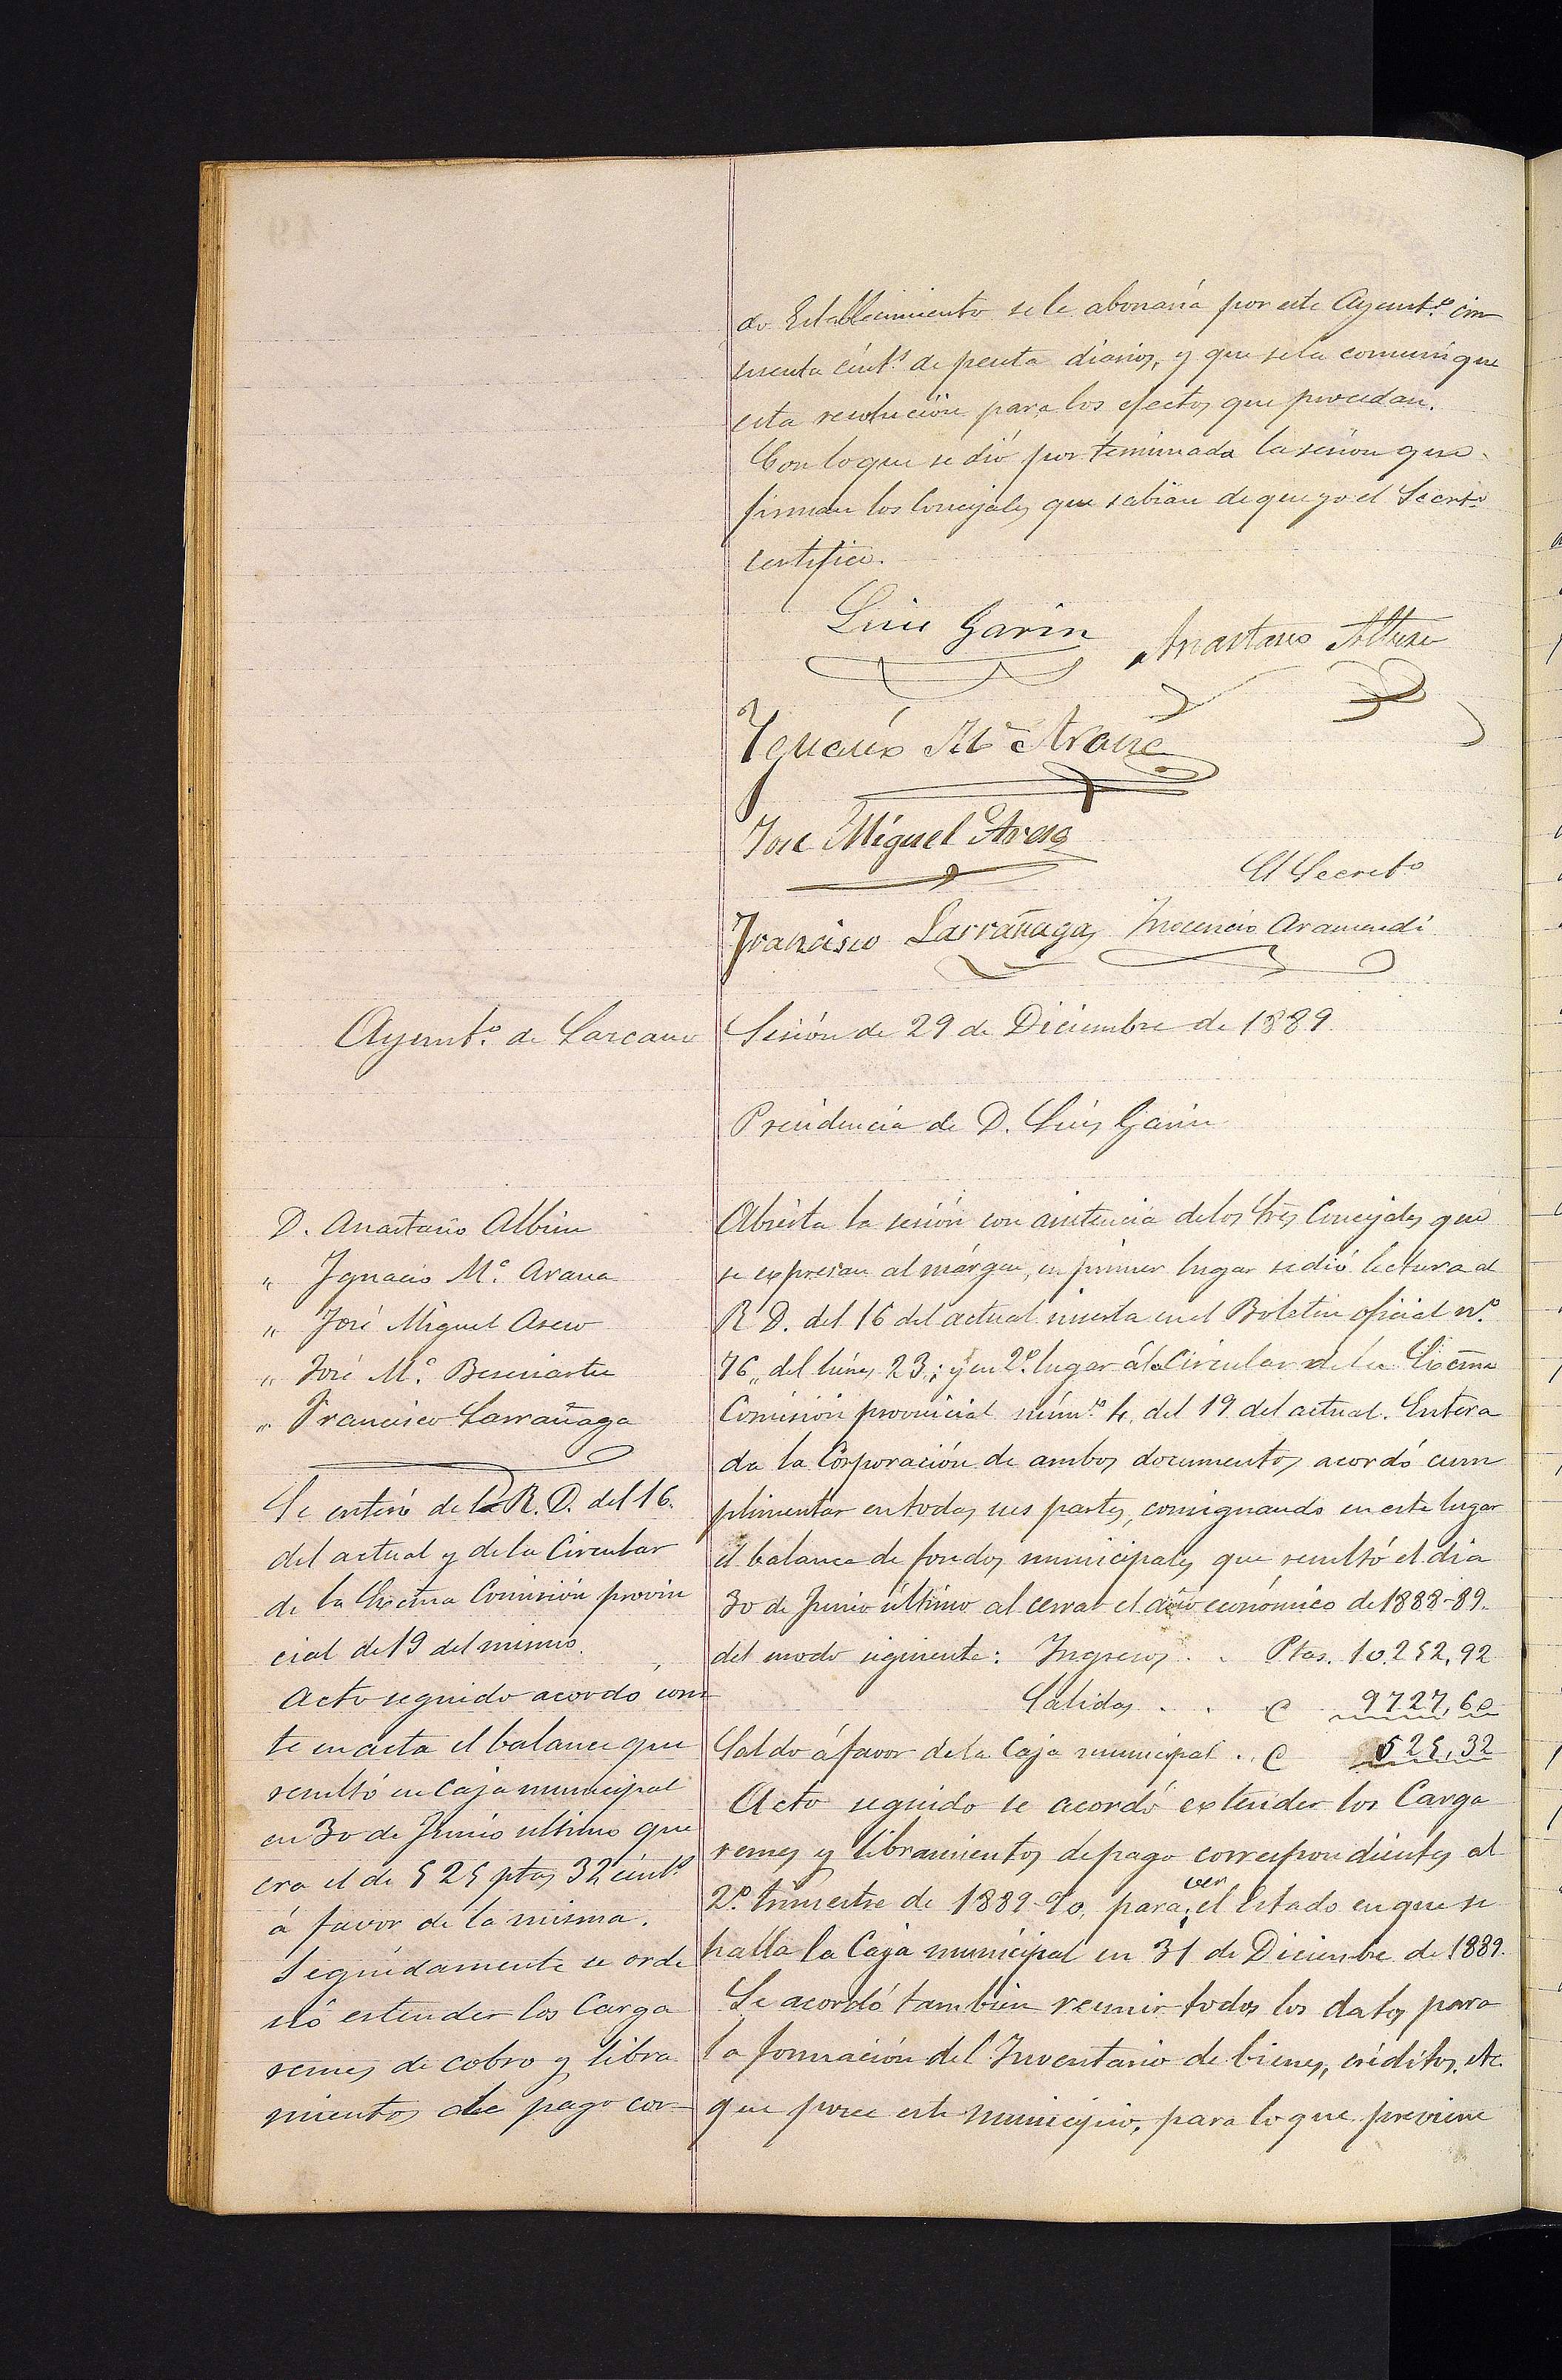 do Establecimiento se le abonaria por este Ayunt.º cin
cuenta cént.s de peseta diarios, y que se la comunique
esta resolución para los efectos que procedan.
Con lo que se dió por terminada la sesion que
firman los Concejales que sabian de que yo el Secret.º
certifico.
Luis Garin
Anastasio
Ignacio M.ª Arana
José Miguel
El Secret.º
Francisco Larrañaga
Inocencio Aramendi
Ayunt.º de Lazcano
Sesión de 29 de Diciembre de 1889.
Presidencia de D. Luis Garin
D. Anastasio Albisu
" Ignacio M.ª Arana
" José Miguel
" José M.ª
" Francisco Larrañaga
Se enteró de la R. D. del 16.
del actual y de la Circular
de la Excma Comisión provin
cial de 19 del mismo.
Acto seguido acordo cons
te en acta el balance que
resultó en Caja municipal
en 30 de Junio ultimo que
era el de 525 ptas 32 cént.s
á favor de la misma.
Seguidamente se orde
nó estender los Carga
remes de cobro y libra
mientos de pago cor-
Abierta la sesión con asistencia de los Sres Concejales que
se expresan al márgen, en primer lugar se dió lectura al
R D. del 16 del actual inserta en el Boletin oficial n.º
76,, del lúnes 23,; y en 2.º lugar á la Circular de la Excma
Comisión provincial núm.º 4, del 19 del actual. Entera
da la Corporación de ambos documentos acordó cum
plimentar en todas sus partes, consignando en este lugar
el balance de fondos municipales que resultó el dia
30 de Junio último al cerrar el año económico de 1888-89.
del modo siguiente: Ingresos . . Ptas. 10.252,92
Salidas . . " 9727,60
Saldo á favor de la Caja municipal . . " 525,32
Acto seguido se acordó extender los Carga
remes y libramientos de pago correspondientes al
2.º trimestre de 1889-90, para ver el Estado en que se
halla la Caja municipal en 31 de Diciembre de 1889.
Se acordó tambien reunir todos los datos para
la formación del Inventario de bienes, créditos, etc.
que posee este municipio, para lo que previene